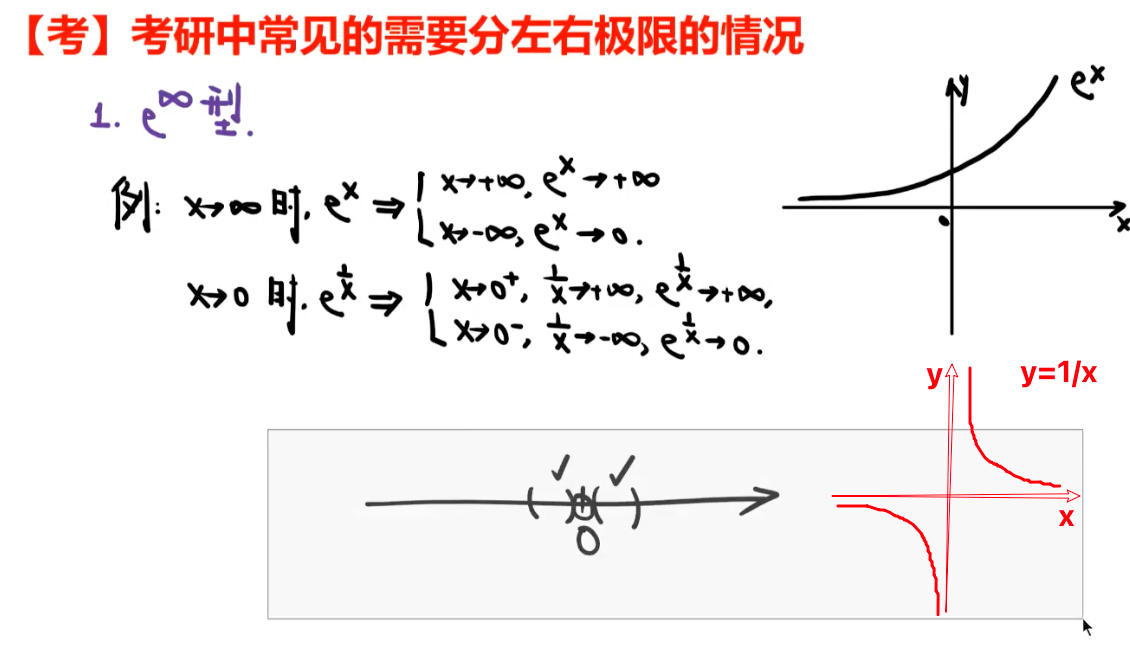 【考】考研中常见的需要分左右极限的情况
1. e^∞型.
例: x→∞时, e^x ⇒ { x→+∞, e^x→+∞
x→-∞, e^x→0.
x→0时, e^(1/x) ⇒ { x→0⁺, 1/x→+∞, e^(1/x)→+∞,
x→0⁻, 1/x→-∞, e^(1/x)→0.
y
e^x
0
x
y
y=1/x
x
( )( )
0